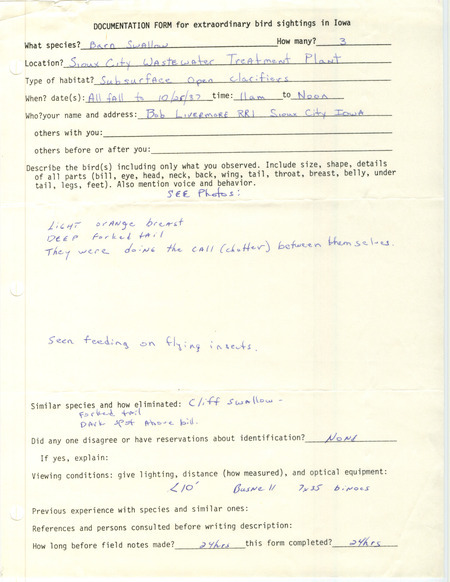 DOCUMENTATION FORM for extraordinary bird sightings in Iowa
What species? Barn Swallow How many? 3
Location? Sioux City Wastewater Treatment Plant
Type of habitat? Subsurface open clarifiers
When? date(s): All fall to 10/28/87 time: 11am to Noon
Who? your name and address: Bob Livermore RR1 Sioux City Iowa
others with you:
others before or after you:
Describe the bird(s) including only what you observed. Include size, shape, details
of all parts (bill, eye, head, neck, back, wing, tail, throat, breast, belly, under
tail, legs, feet). Also mention voice and behavior.
SEE Photos:
LIGHT orange breast
DEEP forked tail
They were doing the call (chatter) between themselves.
Seen feeding on flying insects.
Similar species and how eliminated: Cliff Swallow -
Forked tail
Dark spot above bill.
Did any one disagree or have reservations about identification? None
If yes, explain:
Viewing conditions: give lighting, distance (how measured), and optical equipment:
<10' Busnell 7x35 binocs
Previous experience with species and similar ones:
References and persons consulted before writing description:
How long before field notes made? 24hrs this form completed? 24hrs